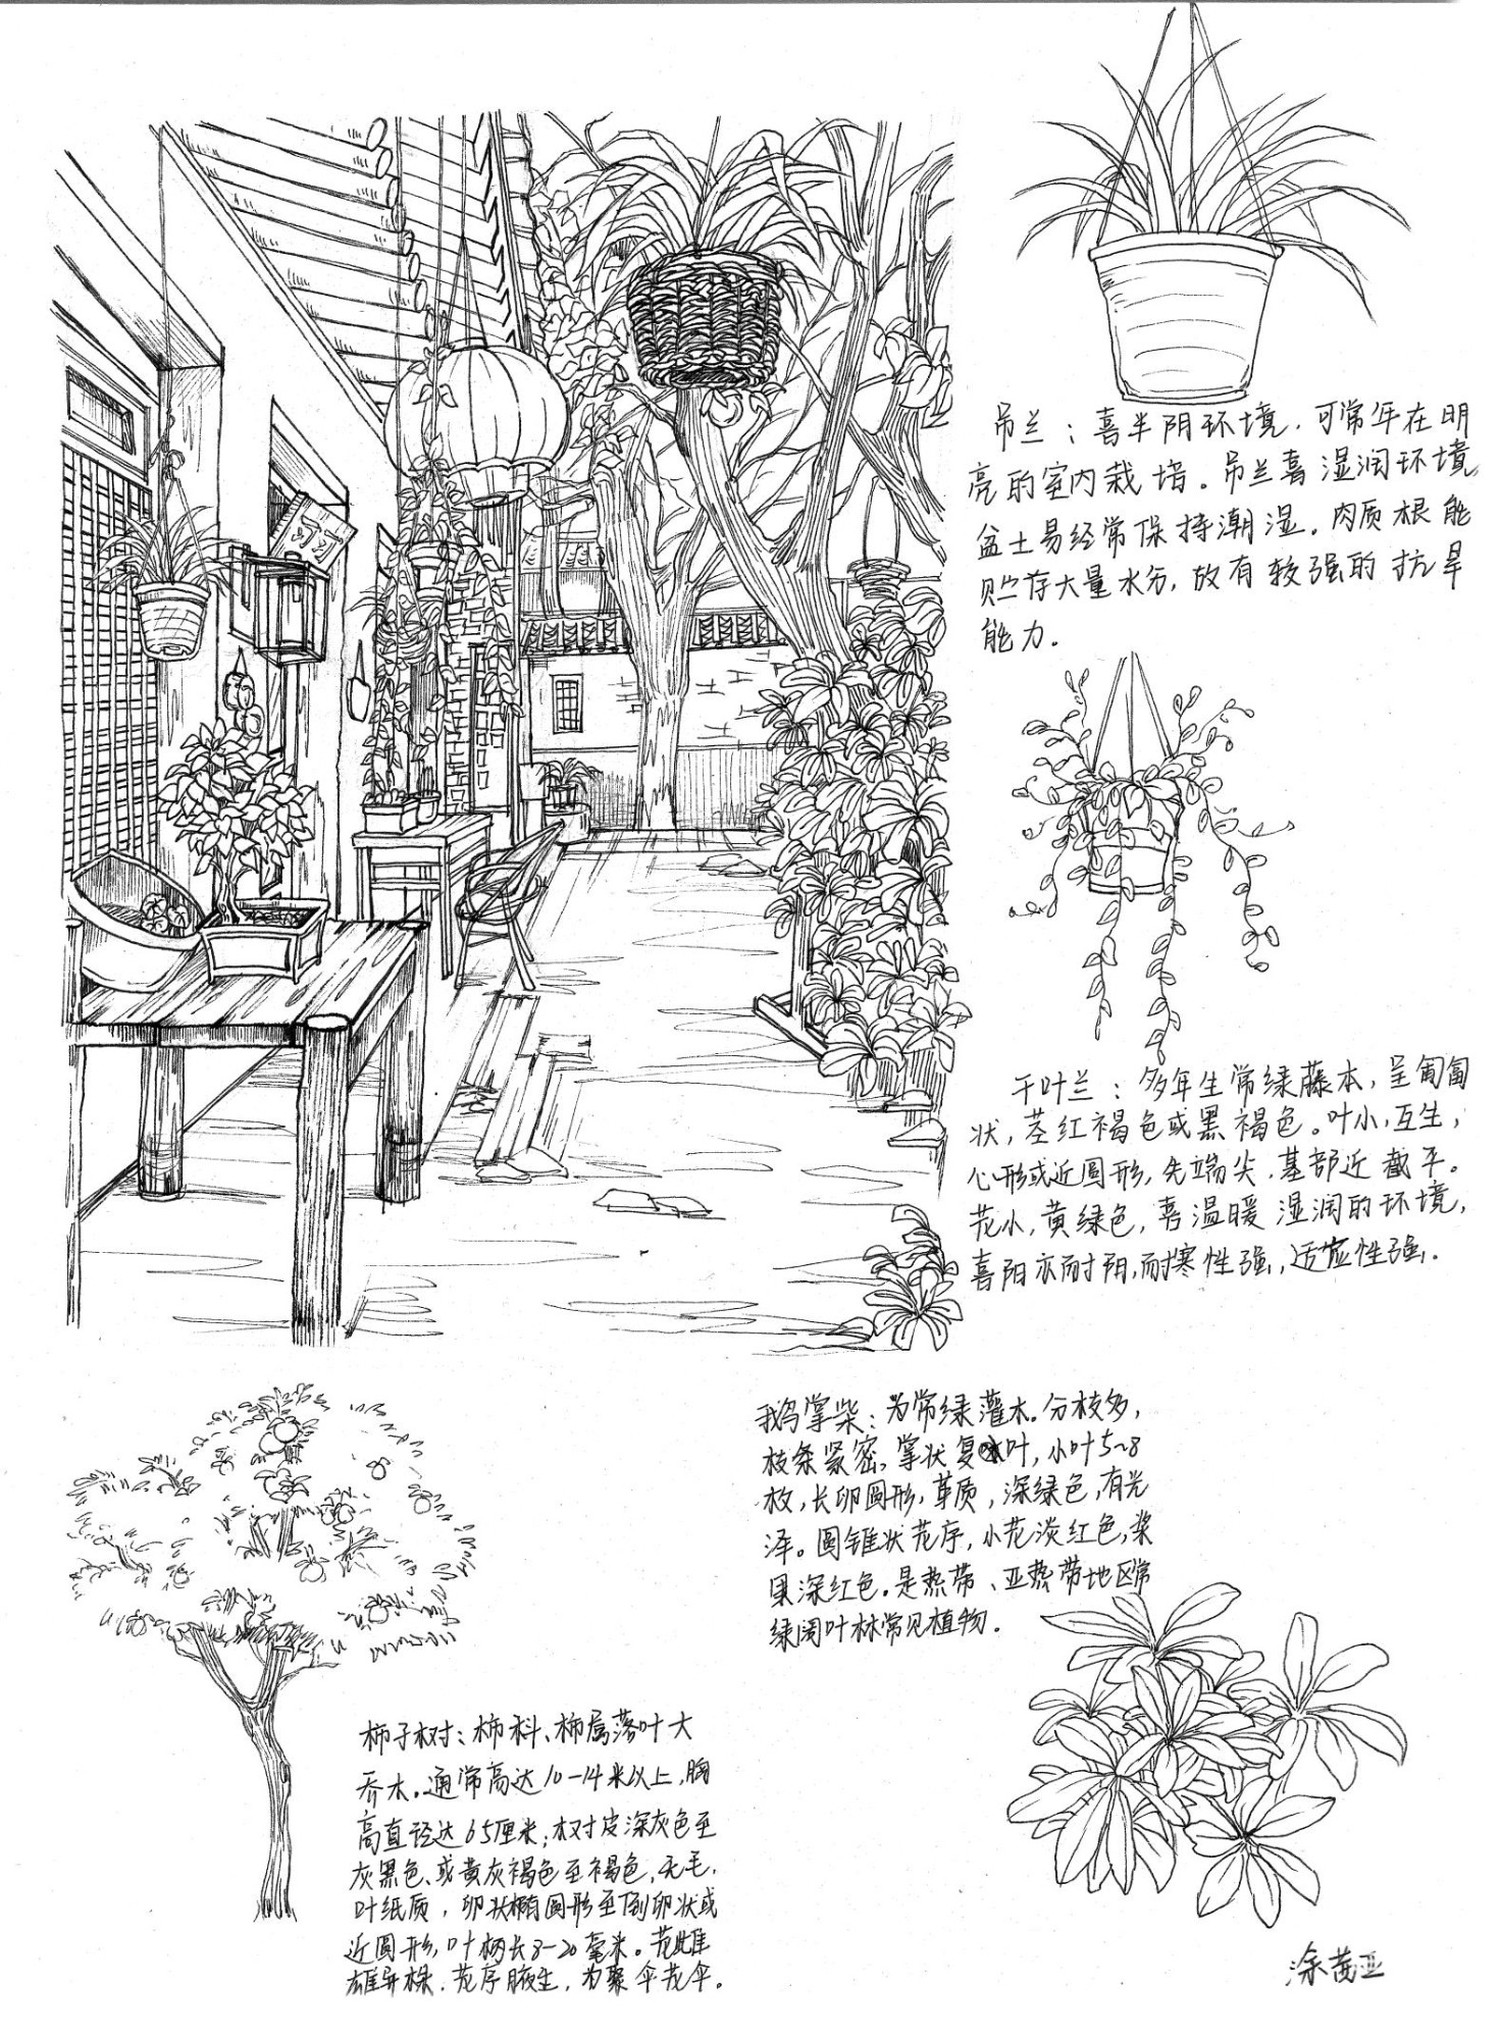 吊兰：喜半阴环境.可常年在明
亮的室内栽培。吊兰喜湿润环境,
盆土易经常保持潮湿.肉质根能
贮存大量水分,故有较强的抗旱
能力.
千叶兰：多年生常绿藤本,呈匍匐
状,茎红褐色或黑褐色。叶小,互生,
心形或近圆形,先端尖.基部近截平。
花小,黄绿色,喜温暖湿润的环境,
喜阳亦耐阴,耐寒性强,适应性强.
鹅掌柴：为常绿灌木.分枝多,
枝条紧密.掌状复叶,小叶5~8
枚,长卵圆形,革质,深绿色,有光
泽。圆锥状花序,小花淡红色,浆
果深红色.是热带、亚热带地区常
绿阔叶林常见植物.
柿子树：柿科、柿属落叶大
乔木.通常高达10-14米以上,胸
高直径达65厘米;树皮深灰色至
灰黑色、或黄灰褐色至褐色,无毛.
叶纸质,卵状椭圆形至倒卵状或
近圆形,叶柄长8-20毫米。花雌
雄异株.花序腋生,为聚伞花伞。
涂茜亚